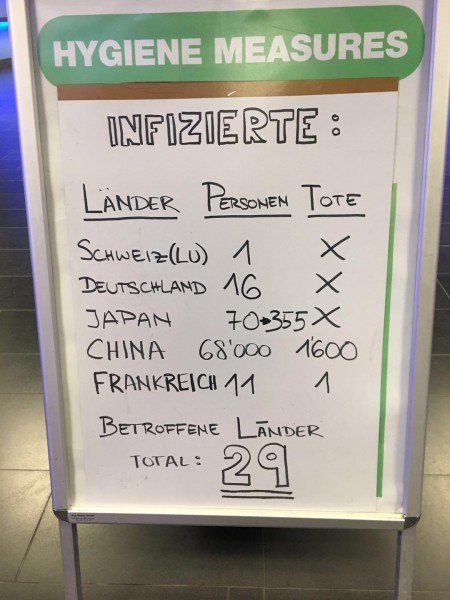 HYGIENE MEASURES
INFIZIERTE:
LÄNDER PERSONEN TOTE
SCHWEIZ(LU) 1 X
DEUTSCHLAND 16 X
JAPAN 70→355 X
CHINA 68'000 1'600
FRANKREICH 11 1
BETROFFENE LÄNDER
TOTAL: 29